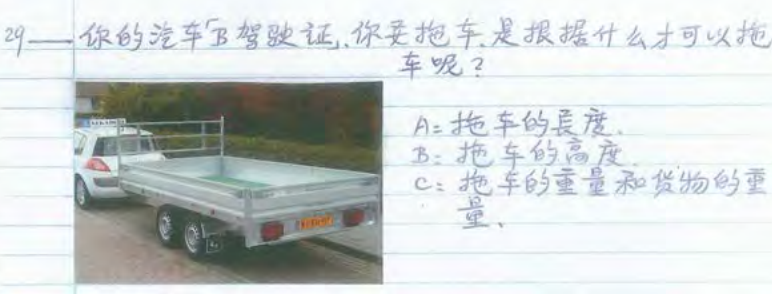 29— 你的汽车B驾驶证,你要拖车,是根据什么才可以拖
车呢?
A=拖车的長度.
B=拖车的高度
C=拖车的重量和货物的重
量.